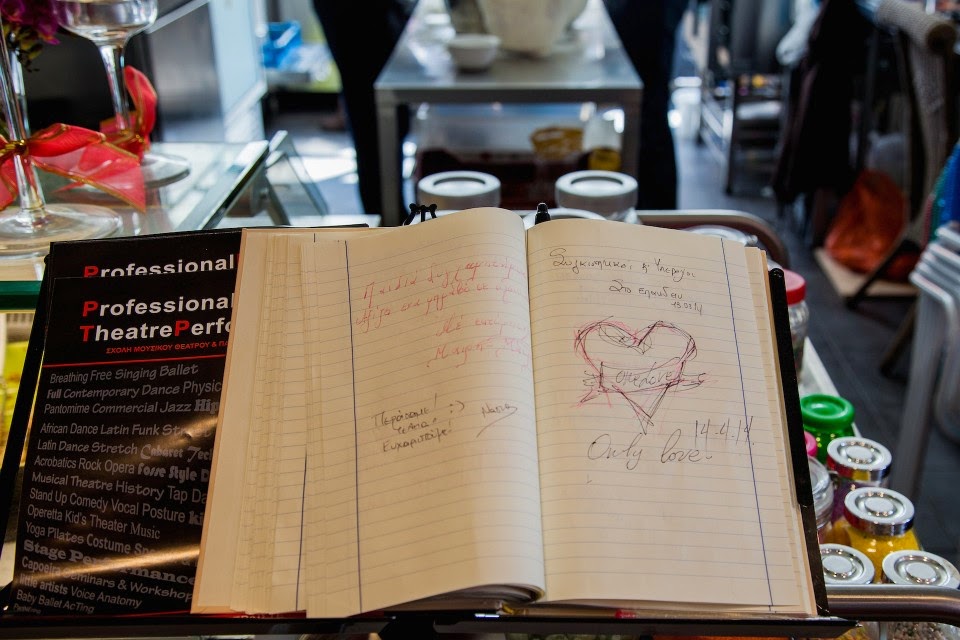 Professional
Professional
TheatrePerfo
ΣΧΟΛΗ ΜΟΥΣΙΚΟΥ ΘΕΑΤΡΟΥ &
Breathing Free Singing Ballet
Full Contemporary Dance Physic
Pantomime Commercial Jazz Hip
African Dance Latin Funk
Latin Dance Stretch Cabaret
Acrobatics Rock Opera Fosse Style
Musical Theatre History Tap Da
Stand Up Comedy Vocal Posture
Operetta Kid's Theater Music
Yoga Pilates Costume
Stage Performance
Capoeira Seminars & Workshop
little artists Voice Anatomy
Baby Ballet AcTing
Παιδιά συγχαρητήρια
Περάσαμε! :)
τέλεια!
Ευχαριστούμε!
Συγκινητικοί & Υπέροχοι
Στο επανιδείν
13.04.14
One Love
14.4.14
Only love.